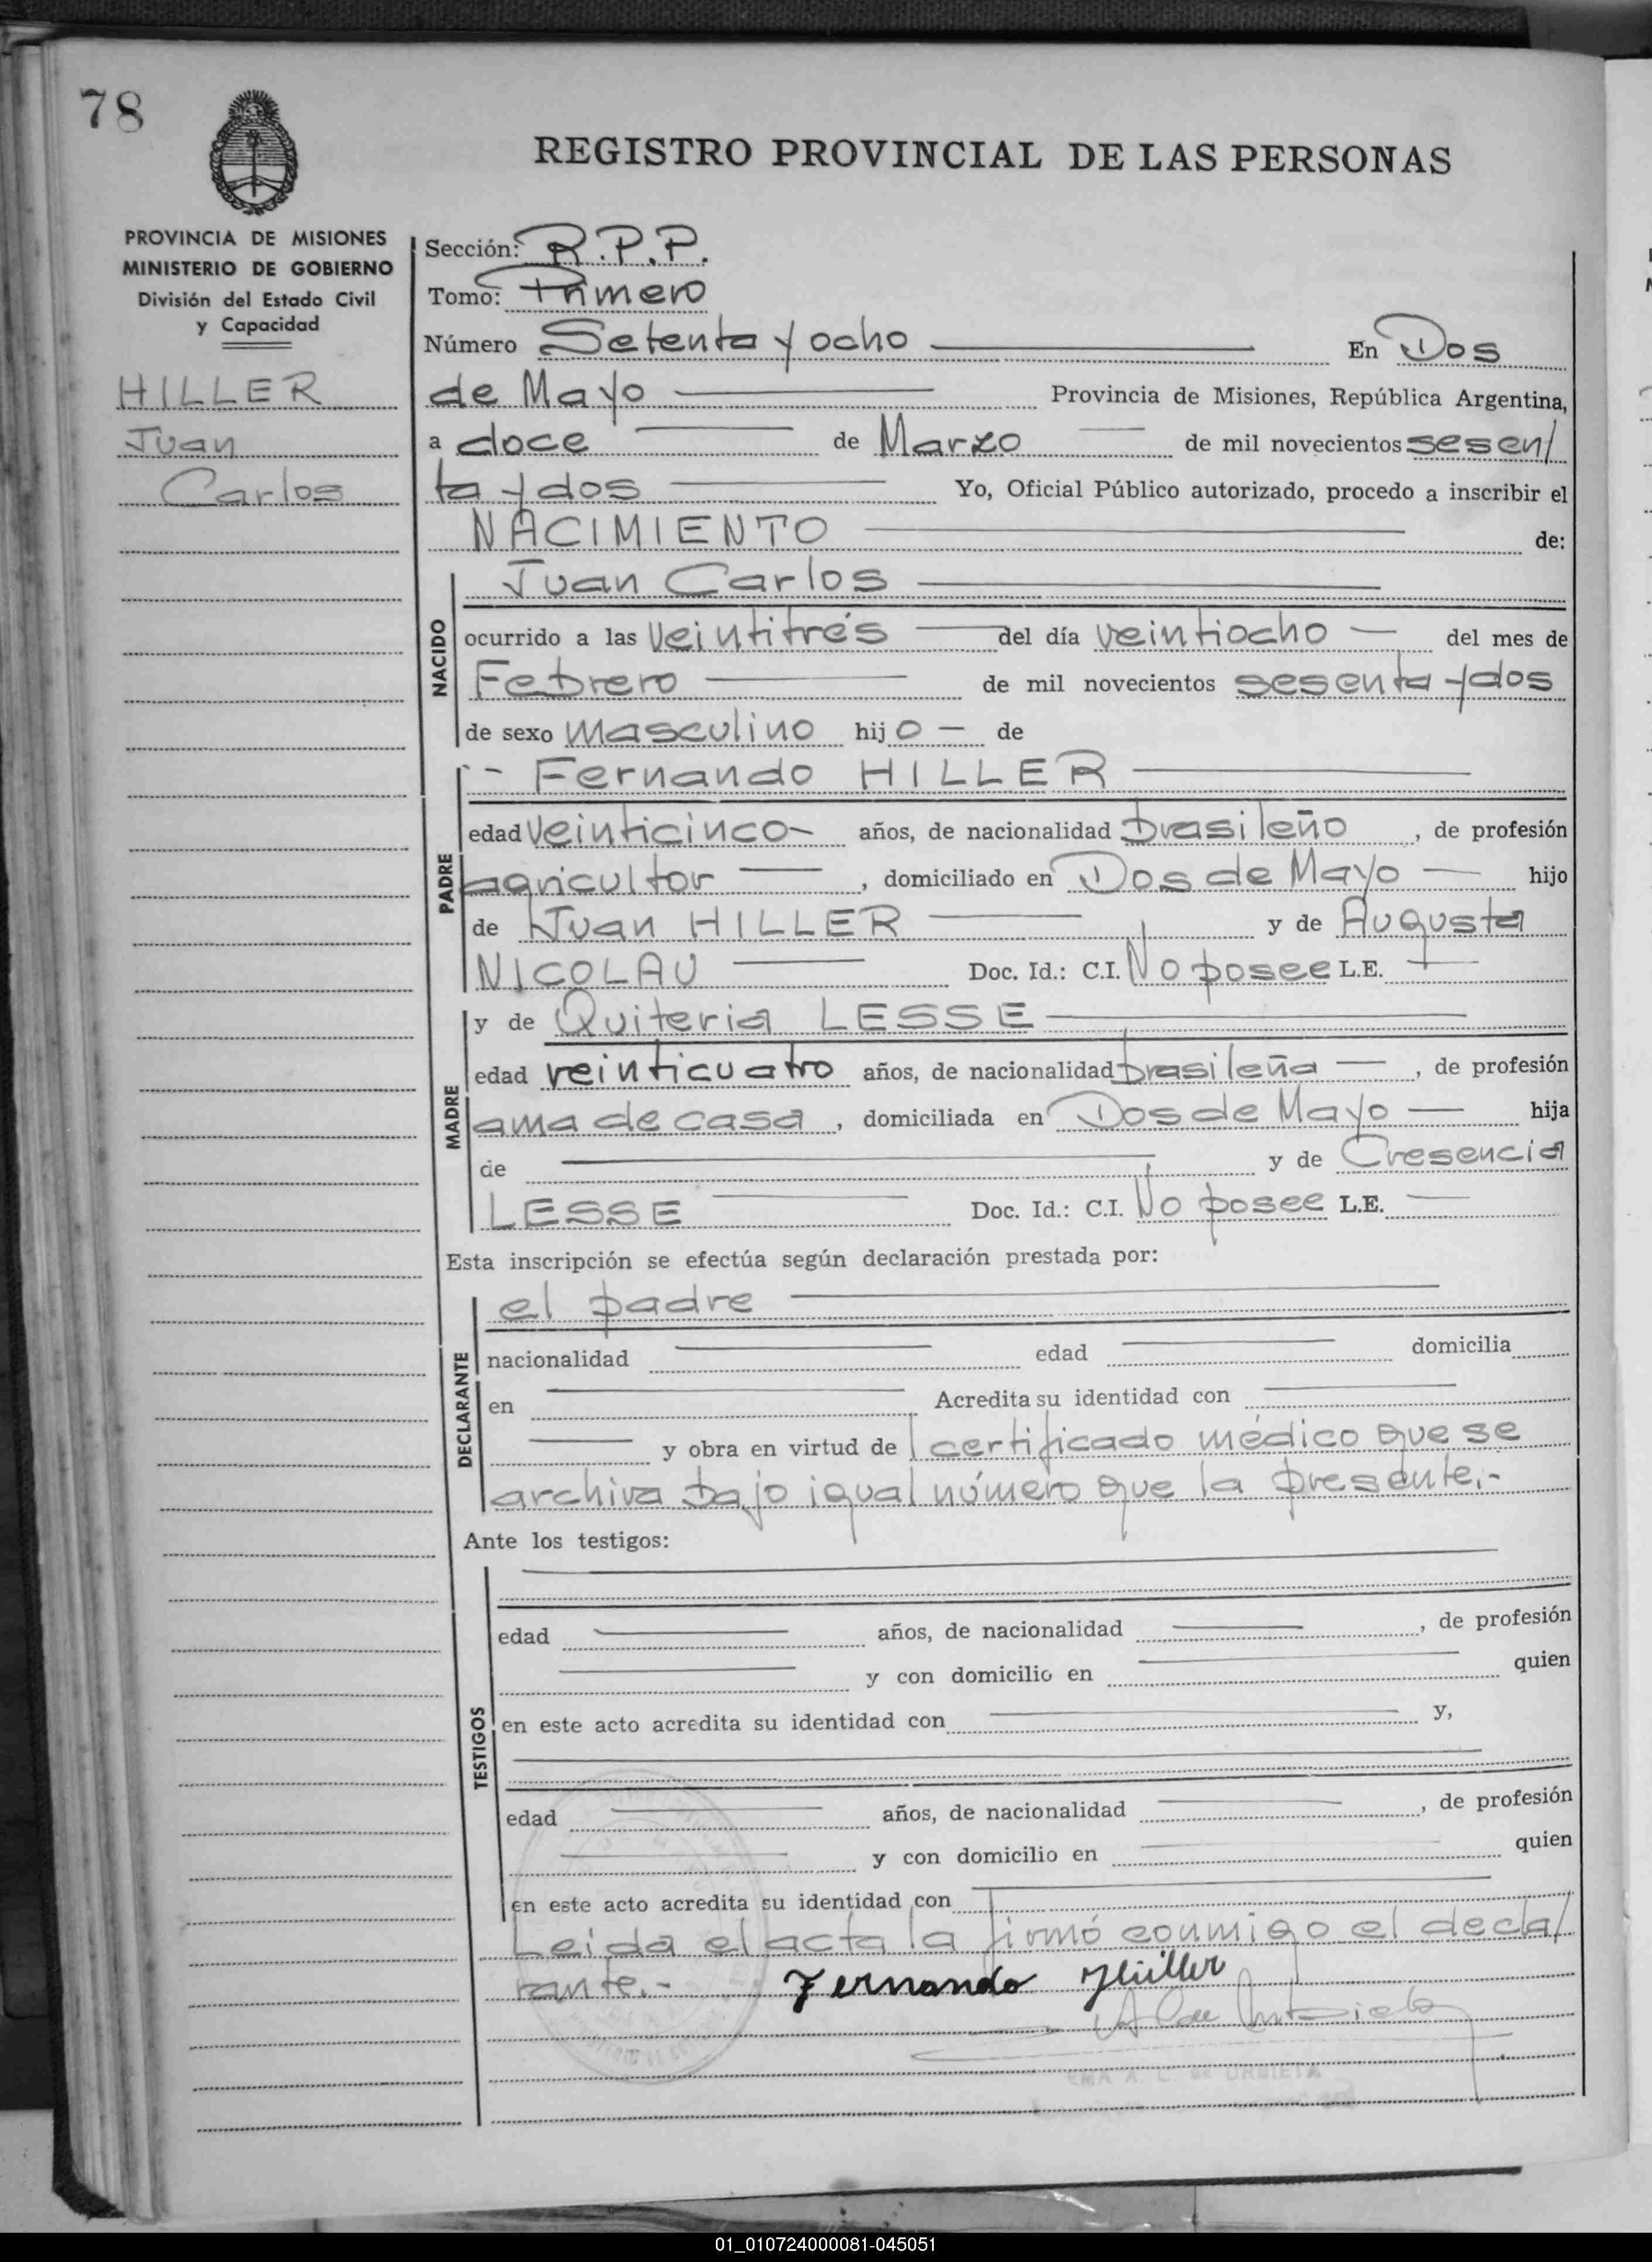 78
REGISTRO PROVINCIAL DE LAS PERSONAS
PROVINCIA DE MISIONES
MINISTERIO DE GOBIERNO
División del Estado Civil
y Capacidad
HILLER
Juan
Carlos
Sección: R.P.P.
Tomo: Primero
Número Setenta y ocho En Dos
de Mayo Provincia de Misiones, República Argentina,
a doce de Marzo de mil novecientos sesen/
ta y dos Yo, Oficial Público autorizado, procedo a inscribir el
NACIMIENTO de:
NACIDO
Juan Carlos
ocurrido a las veintitrés del día veintiocho del mes de
Febrero de mil novecientos sesenta y dos
de sexo masculino hijo de
PADRE
Fernando HILLER
edad veinticinco años, de nacionalidad brasileño, de profesión
agricultor, domiciliado en Dos de Mayo hijo
de Juan HILLER y de Augusta
NICOLAU Doc. Id.: C.I. No posee L.E.
MADRE
y de Quiteria LESSE
edad veinticuatro años, de nacionalidad brasileña, de profesión
ama de casa, domiciliada en Dos de Mayo hija
de y de Cresencia
LESSE Doc. Id.: C.I. No posee L.E.
Esta inscripción se efectúa según declaración prestada por:
DECLARANTE
el padre
nacionalidad edad domicilia
en Acredita su identidad con
y obra en virtud de certificado médico que se
archiva bajo igual número que la presente.-
Ante los testigos:
TESTIGOS
edad años, de nacionalidad, de profesión
y con domicilio en quien
en este acto acredita su identidad con y,
edad años, de nacionalidad, de profesión
y con domicilio en quien
en este acto acredita su identidad con
Leida el acta la firmó conmigo el decla/
rante.- Fernando Hiller
EMA A. C. de URBIETA
01_010724000081-045051